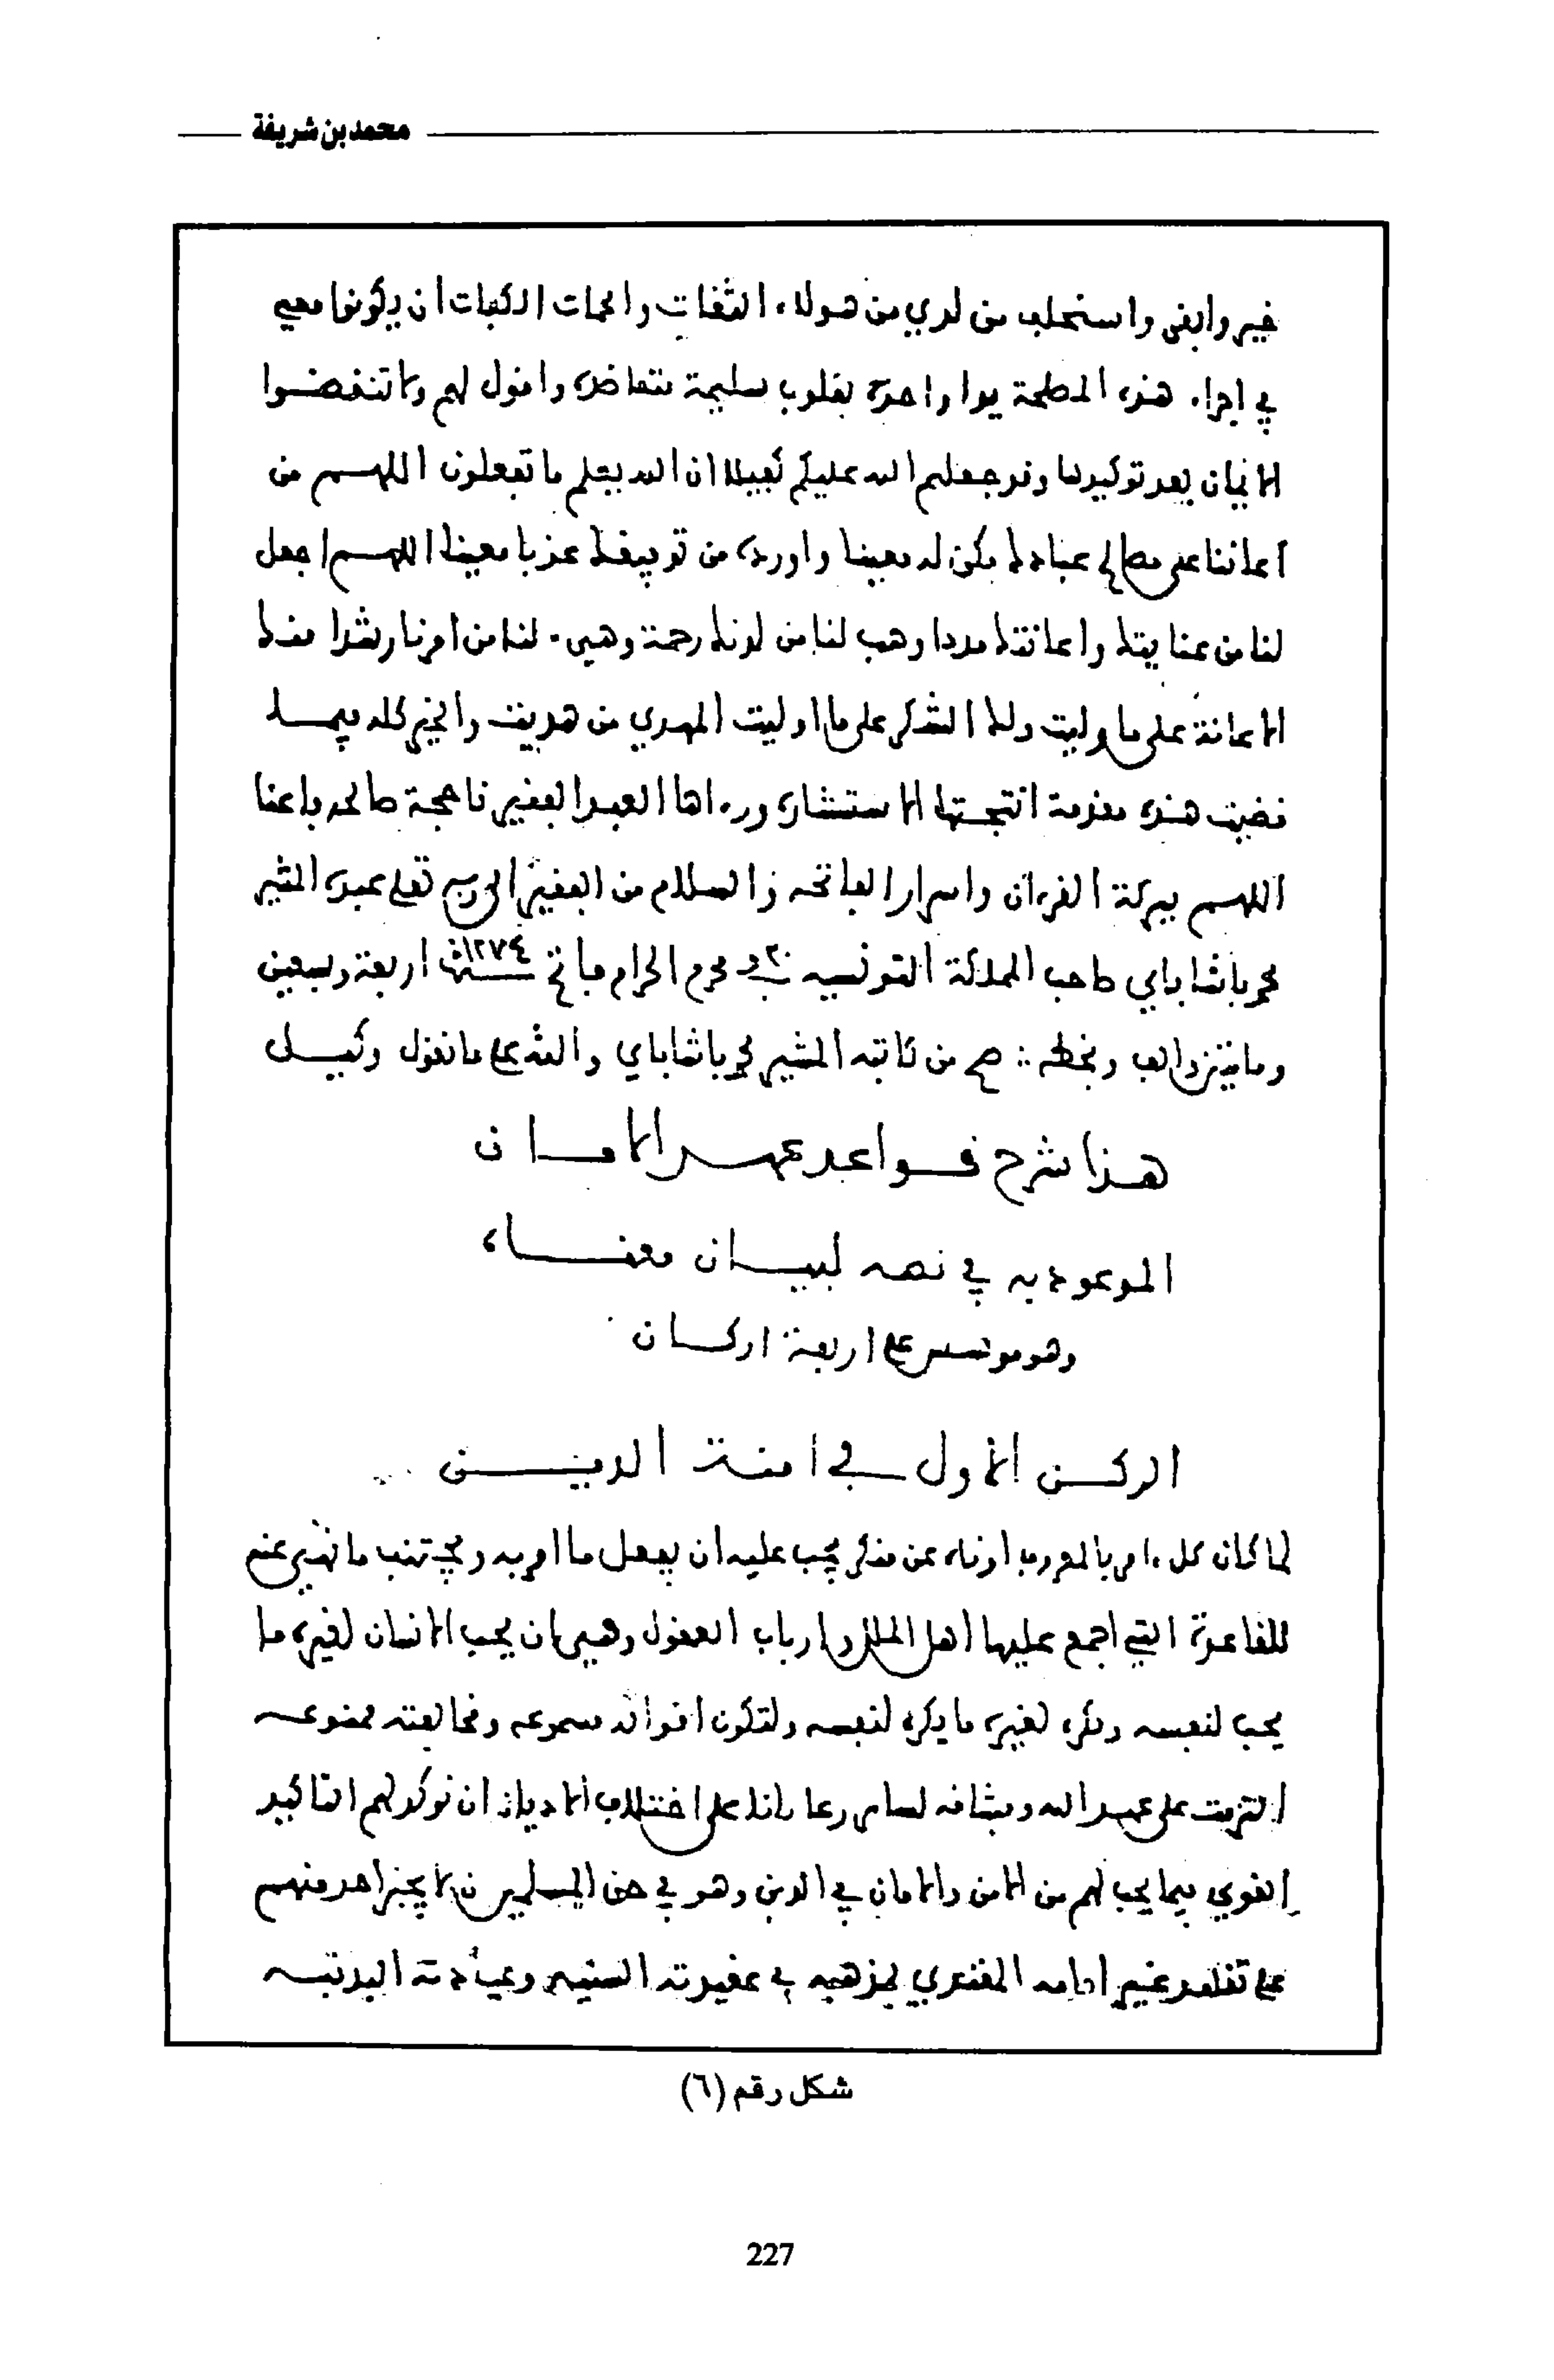 محمد بن شريفة
خير وابقى واستحلف من لدي من هولاء الثقات والجات الكبات ان يكونوا معي
في اجراء هذه المصلحة يدا واحدة بقلوب سليمة متعاضدة واقول لهم ولا تنقضوا
الايمان بعد توكيدها وقد جعلتم الله عليكم كفيلا ان الله يعلم ما تفعلون اللهم من
اعاننا على مصالح عباده فكن له معينا واورده من توفيقك عذبا معينا اللهم اجعل
لنا من عنايتك واعانتك مددا وهب لنا من لدنك رحمة وهيء لنا من امرنا رشدا منك
الاعانة على ما وليت ولك الشكر على ما اوليت المهدي من هديت والخير كله فيما
قضيت هذه مقدمة انتجتها الاستشارة ورءاها العبد الفقير ناجحة صالحه باعنا
اللهم ببركة القرءان واسرار الفاتحه والسلام من الفقير الى ربه تعلى عبده المشير
محمد باشا باي صاحب المملكة التونسيه في ٢٠ محرم الحرام فاتح سنة ١٢٧٤ اربعة وسبعين
ومايتين والف وبخطه :: صح من كاتبه المشير محمد باشا باي والله على ما نقول وكيل
هذا شرح قواعد عهد الامان
الموعود به في نصه لبيان معناه
وهو موسس على اربعة اركان
الركن الاول في امنة الدين
لما كان كل ءامر بالمعروف او ناه عن منكر يجب عليه ان يفعل ما امر به ويجتنب ما نهى عنه
للقاعدة التي اجمع عليها اهل الملل وارباب العقول وهي ان يحب الانسان لغيره ما
يحب لنفسه ويكره لغيره ما يكره لنفسه ولتكون اقواله مسموعه ومخالفته ممنوعه
التزمت على عهد الله وميثاقه لساير رعايانا على اختلاف الاديان ان نوكد لهم التاكيد
القوي فيما يجب لهم من الامن والامان في الدين وهو في حق المسلمين ان لا يجبر احد منهم
على تقليد غير امامه المقتدي بمذهبه في عقيدته السنيه وعبادته البدنيه
شكل رقم (٦)
227